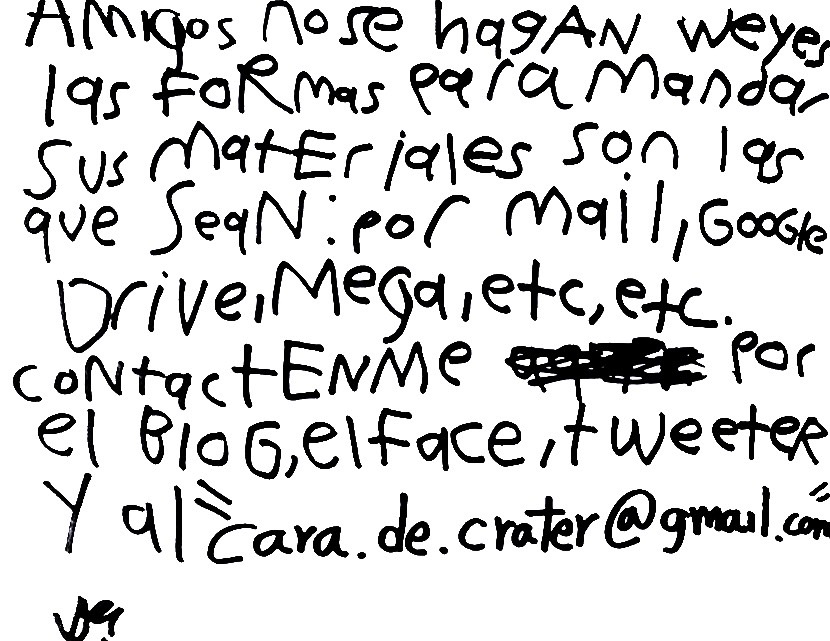 AMigos no se hagAN weyes
las foRmas para mandar
sus matERiales son las
que SeaN: por mail, GOOGle
Drive, Mega, etc, etc.
coNtactENMe por
el BloG, el face, tweeteR
Y al "cara.de.crater@gmail.com"